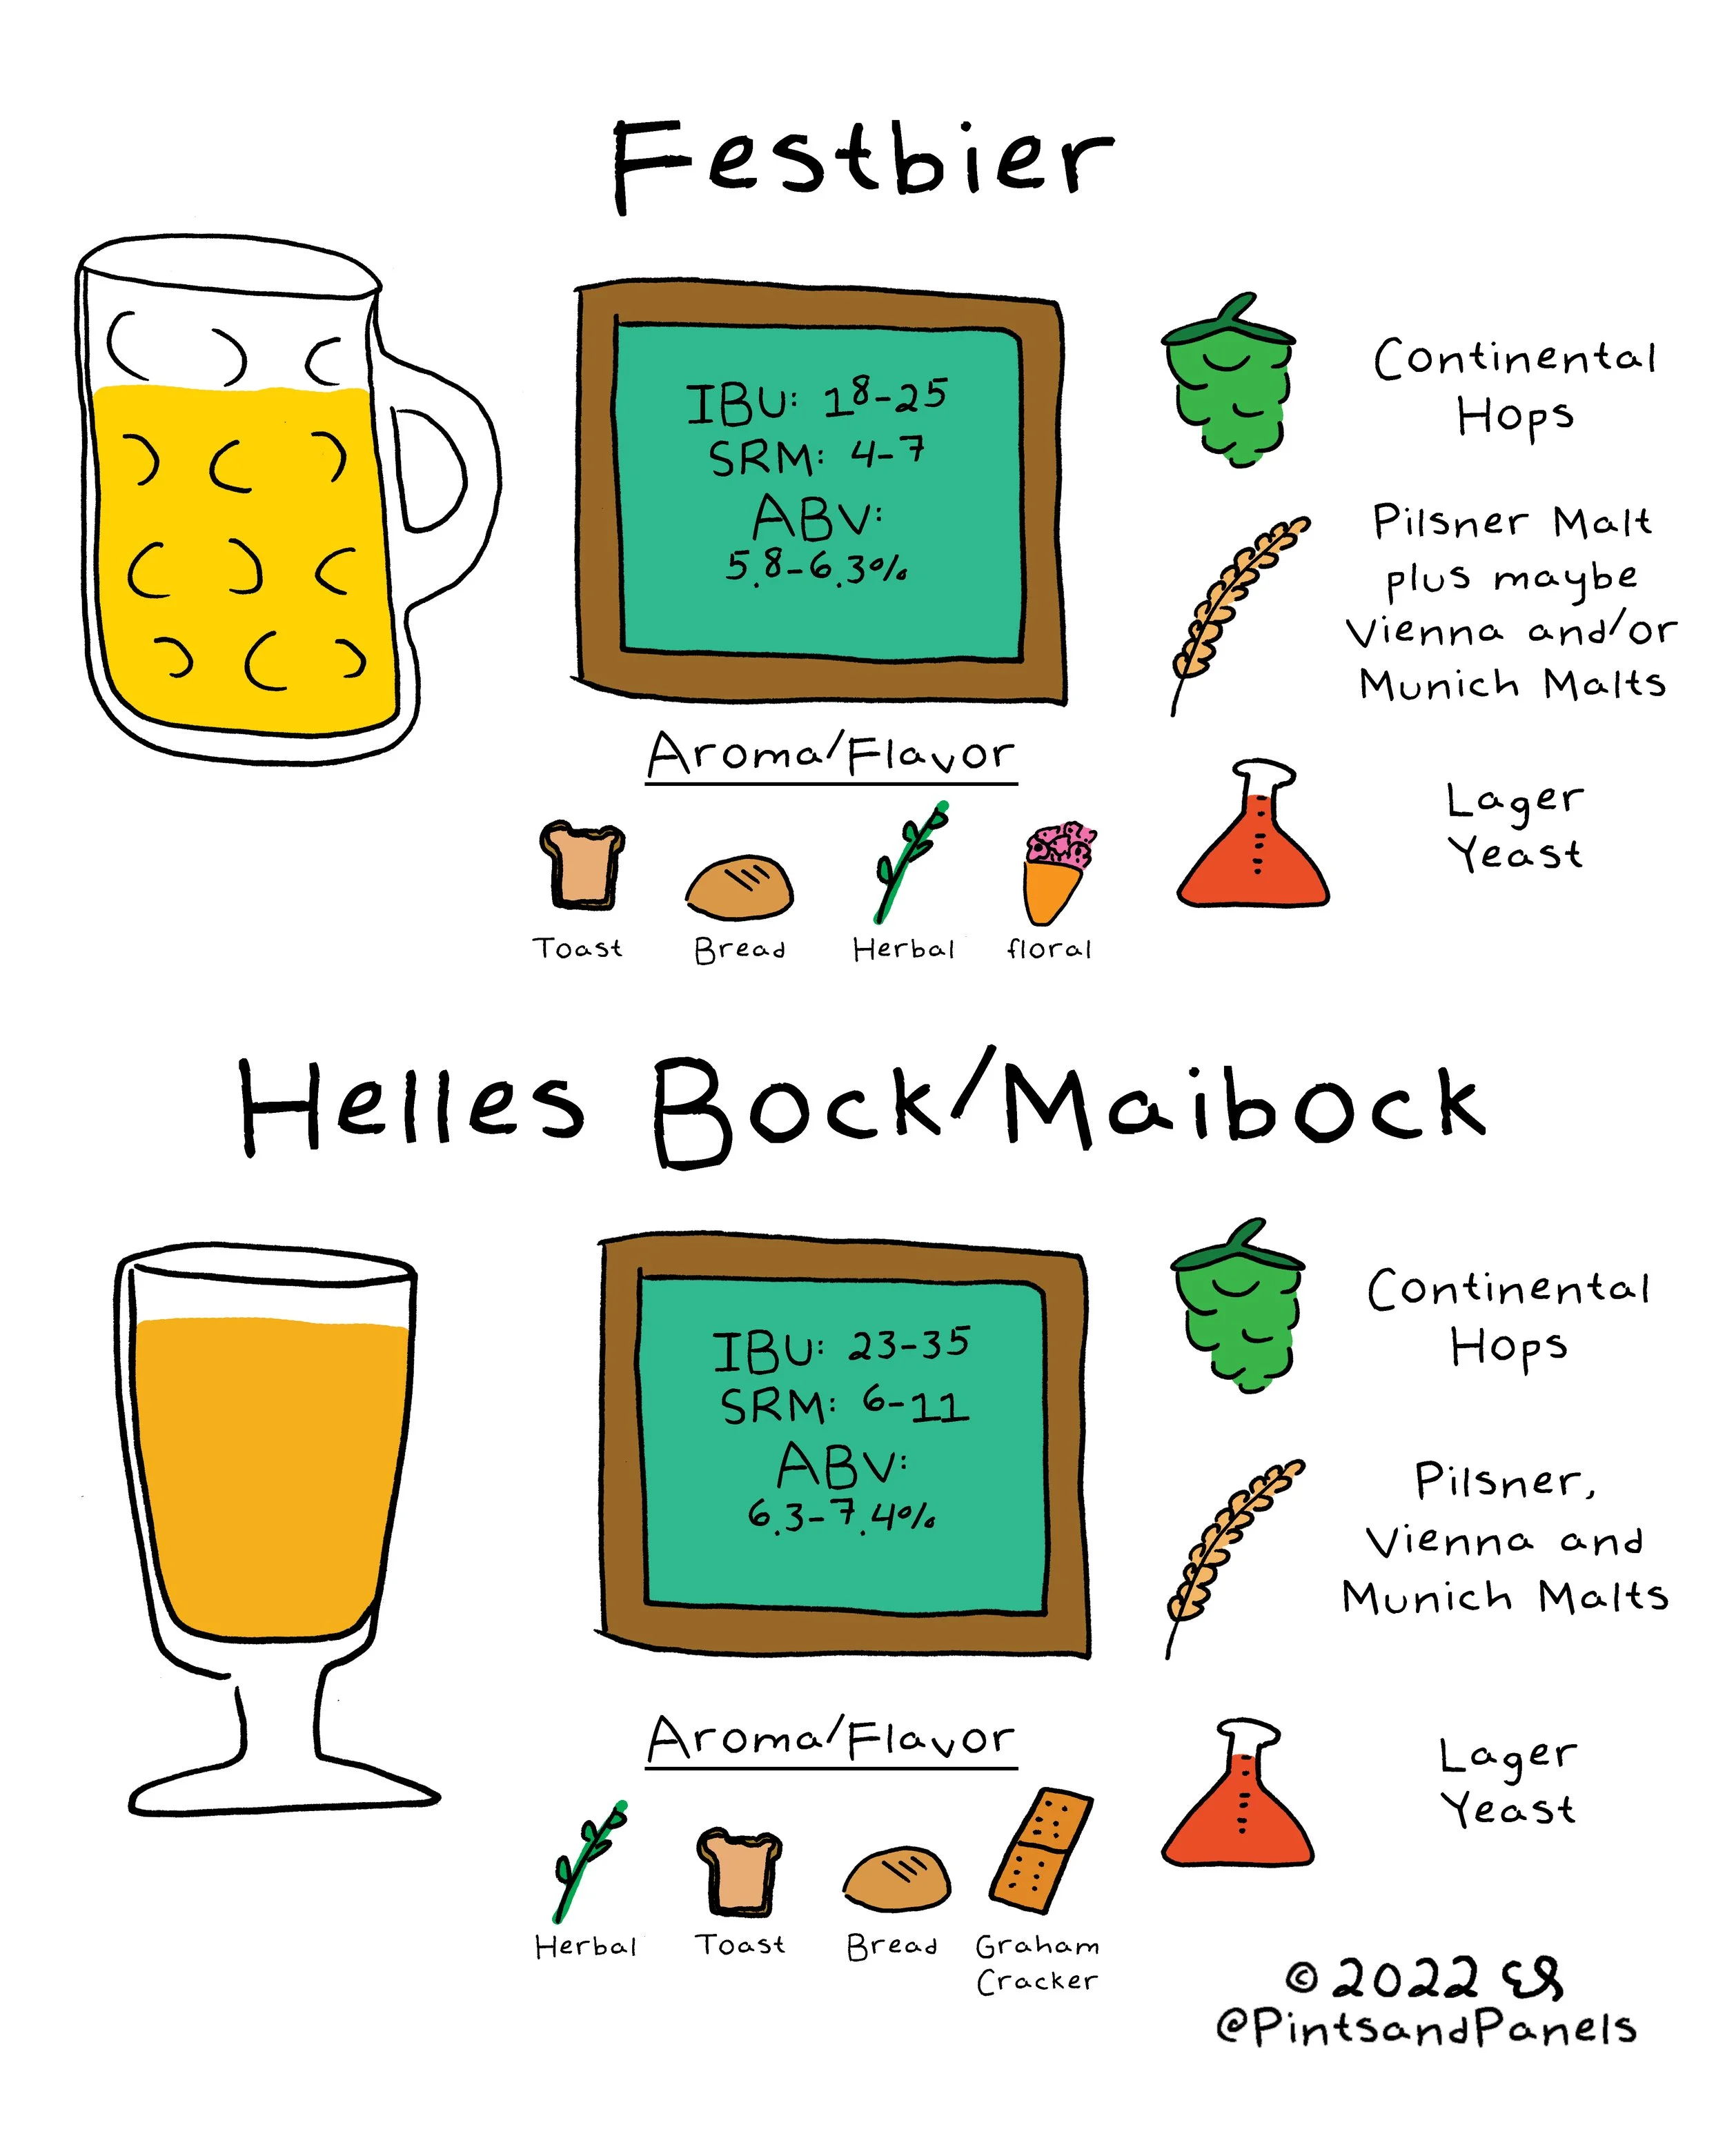 Festbier
IBU: 18-25
SRM: 4-7
ABV:
5.8-6.3%
Continental
Hops
Pilsner Malt
plus maybe
Vienna and/or
Munich Malts
Lager
Yeast
Aroma/Flavor
Toast
Bread
Herbal
floral
Helles Bock/Maibock
IBU: 23-35
SRM: 6-11
ABV:
6.3-7.4%
Continental
Hops
Pilsner,
Vienna and
Munich Malts
Lager
Yeast
Aroma/Flavor
Herbal
Toast
Bread
Graham
Cracker
©2022
@PintsandPanels